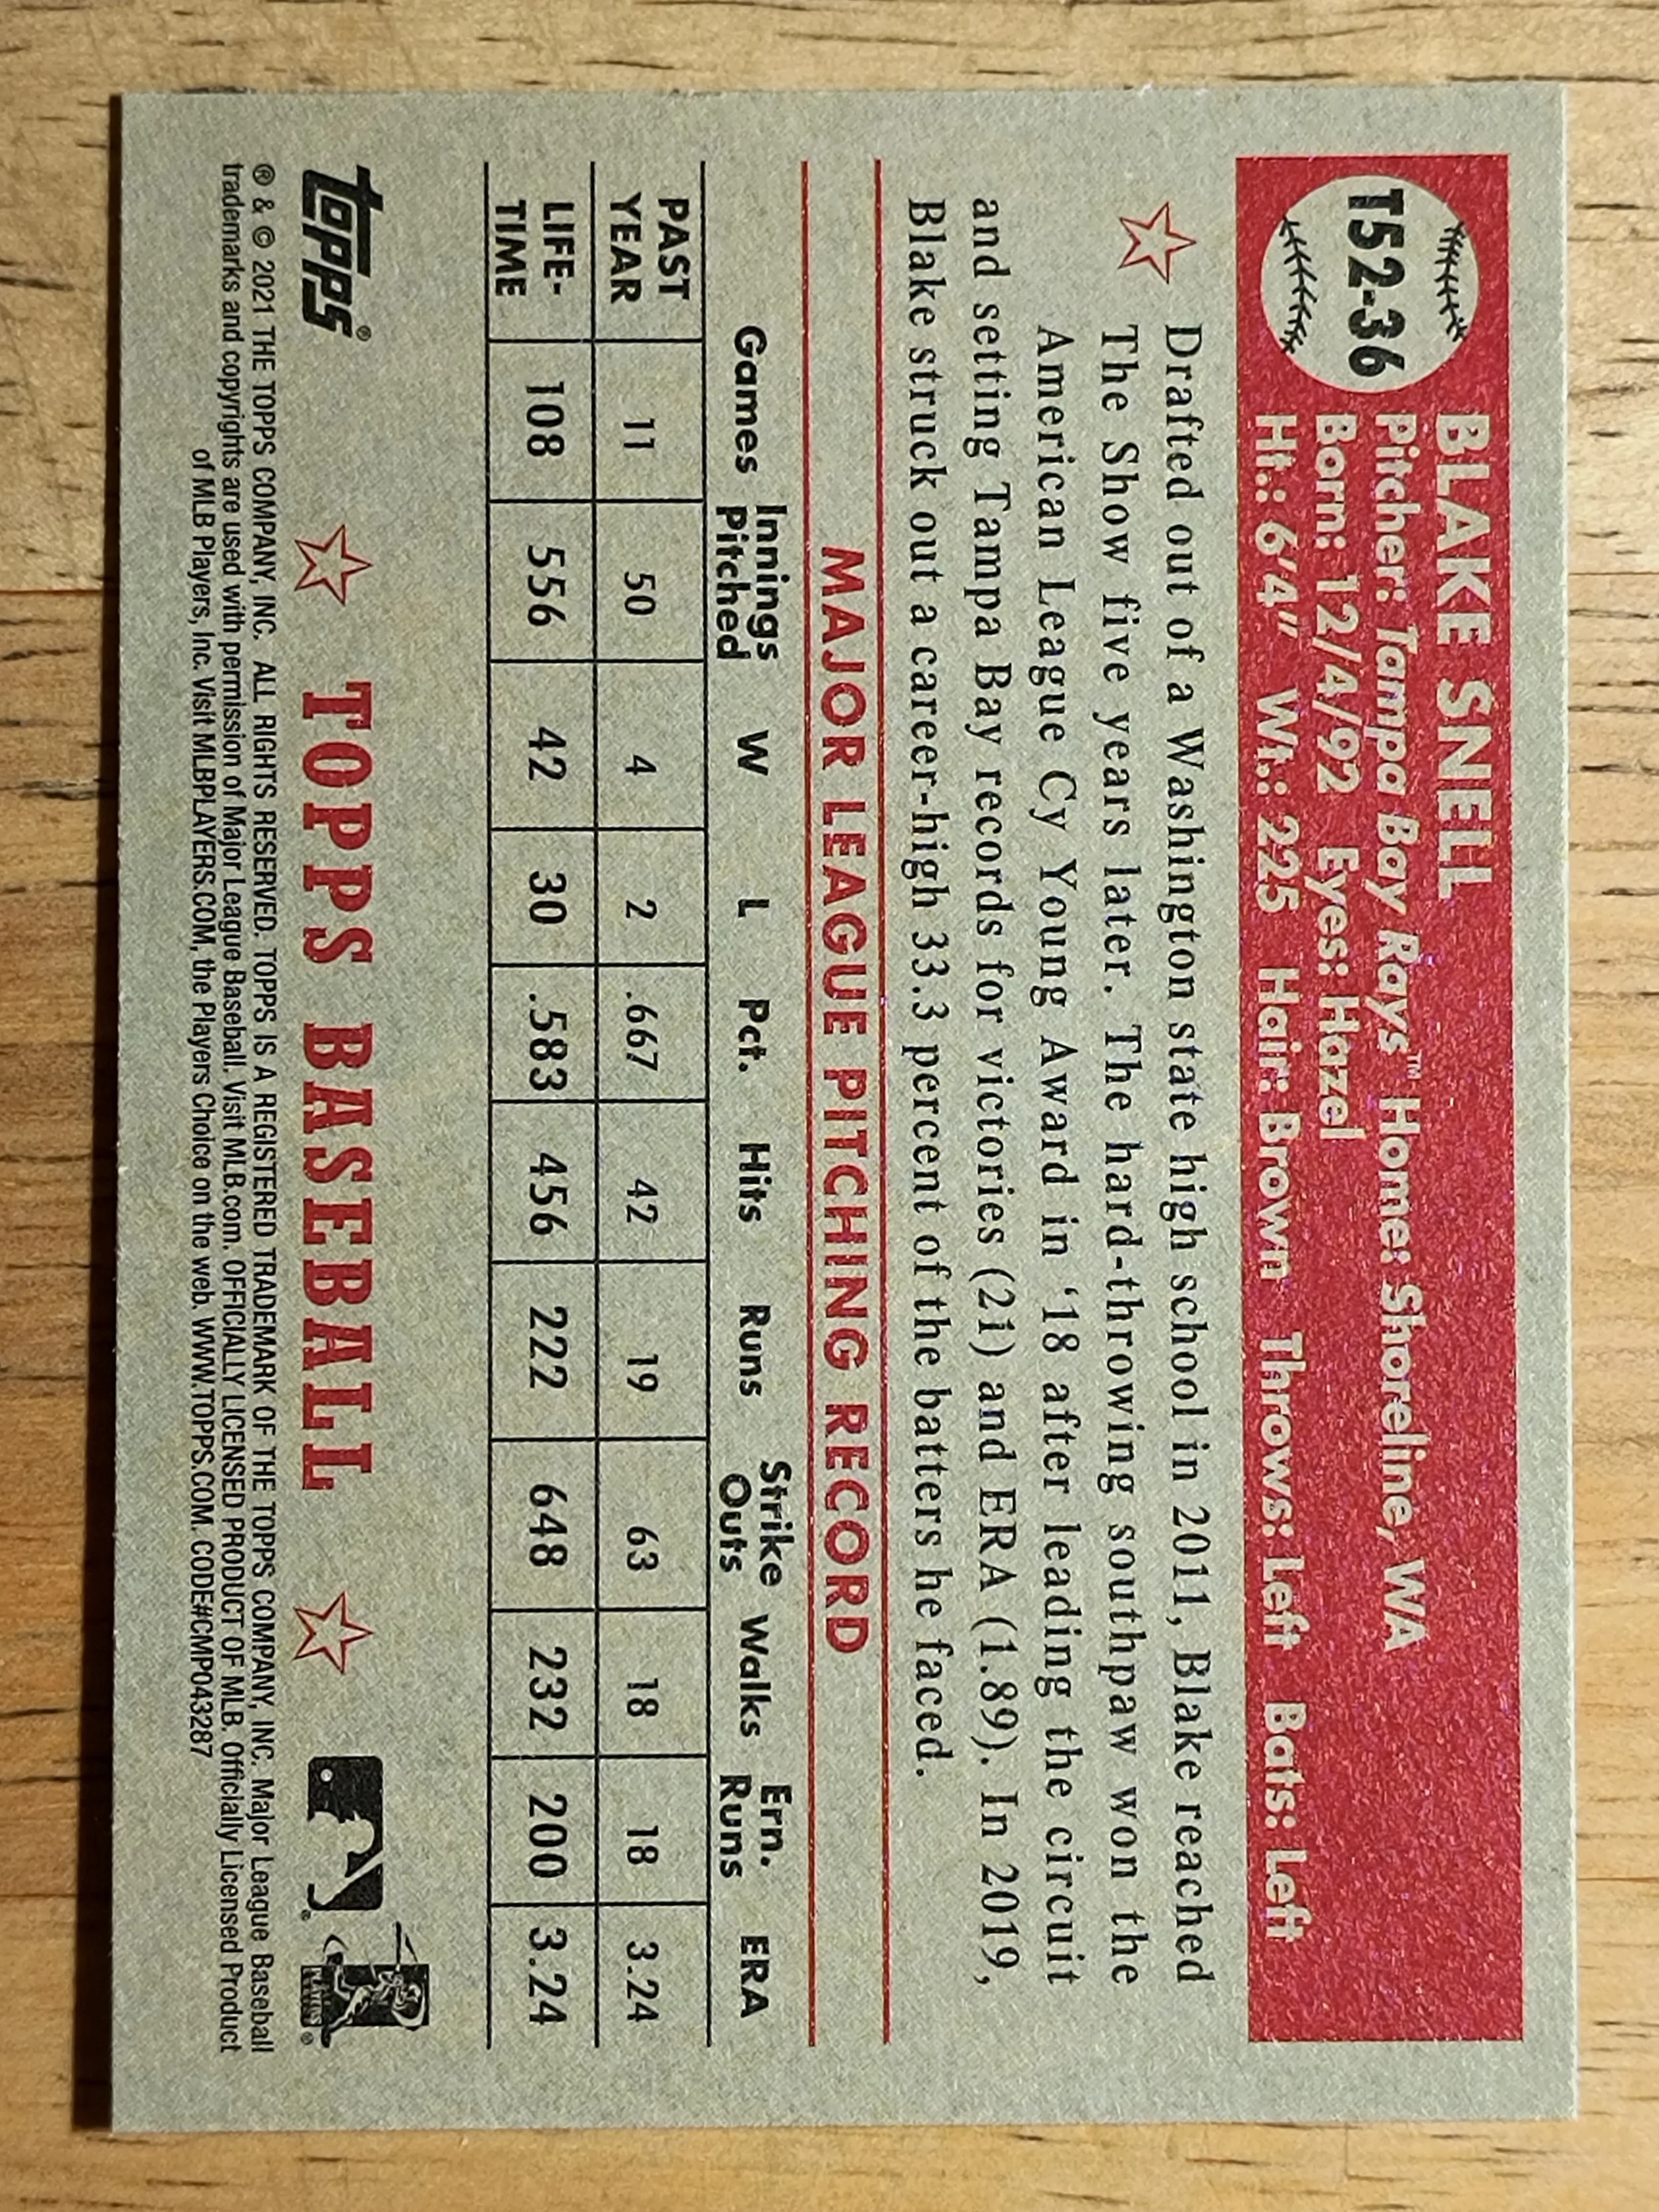 T52-36
BLAKE SNELL
Pitcher: Tampa Bay Rays™ Home: Shoreline, WA
Born: 12/4/92 Eyes: Hazel
Ht.: 6'4" Wt.: 225 Hair: Brown Throws: Left Bats: Left
Drafted out of a Washington state high school in 2011, Blake reached
The Show five years later. The hard-throwing southpaw won the
American League Cy Young Award in ‘18 after leading the circuit
and setting Tampa Bay records for victories (21) and ERA (1.89). In 2019,
Blake struck out a career-high 33.3 percent of the batters he faced.
MAJOR LEAGUE PITCHING RECORD
Games Innings Pitched W L Pct. Hits Runs Strike Outs Walks Ern. Runs ERA
PAST YEAR 11 50 4 2 .667 42 19 63 18 18 3.24
LIFE-TIME 108 556 42 30 .583 456 222 648 232 200 3.24
topps® TOPPS BASEBALL
® & © 2021 THE TOPPS COMPANY, INC. ALL RIGHTS RESERVED. TOPPS IS A REGISTERED TRADEMARK OF THE TOPPS COMPANY, INC. Major League Baseball
trademarks and copyrights are used with permission of Major League Baseball. Visit MLB.com. OFFICIALLY LICENSED PRODUCT OF MLB. Officially Licensed Product
of MLB Players, Inc. Visit MLBPLAYERS.COM, the Players Choice on the web. WWW.TOPPS.COM. CODE#CMP043287